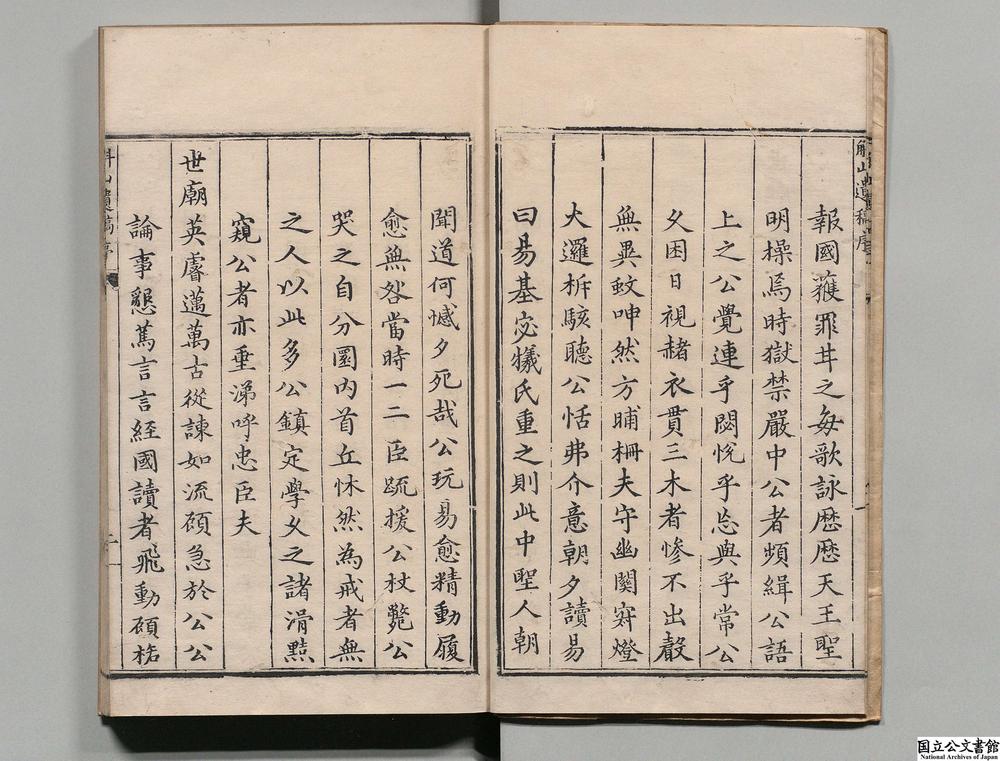 斛山遺稿序
報國獲罪其之每歌詠歷歷天王聖
明操焉時獄禁嚴中公者頻緝公語
上之公覺連乎閟悅乎忘與乎常公
夂困日視赭衣貫三木者慘不出聲
無異蚊呻然方晡柵夫守幽闃穽燈
大邏柝駭聽公恬弗介意朝夕讀易
曰易基宓犧氏重之則此中聖人朝
聞道何憾夕死哉公玩易愈精動履
愈無咎當時一二臣疏援公杖斃公
哭之自分圜內首丘怵然為戒者無
之人以此多公鎮定學夂之諸滑黠
窺公者亦垂涕呼忠臣夫
世廟英睿邁萬古從諫如流頋急於公公
論事懇篤言言經國讀者飛動頋桰
斛山遺稿序
二
国立公文書館
National Archives of Japan